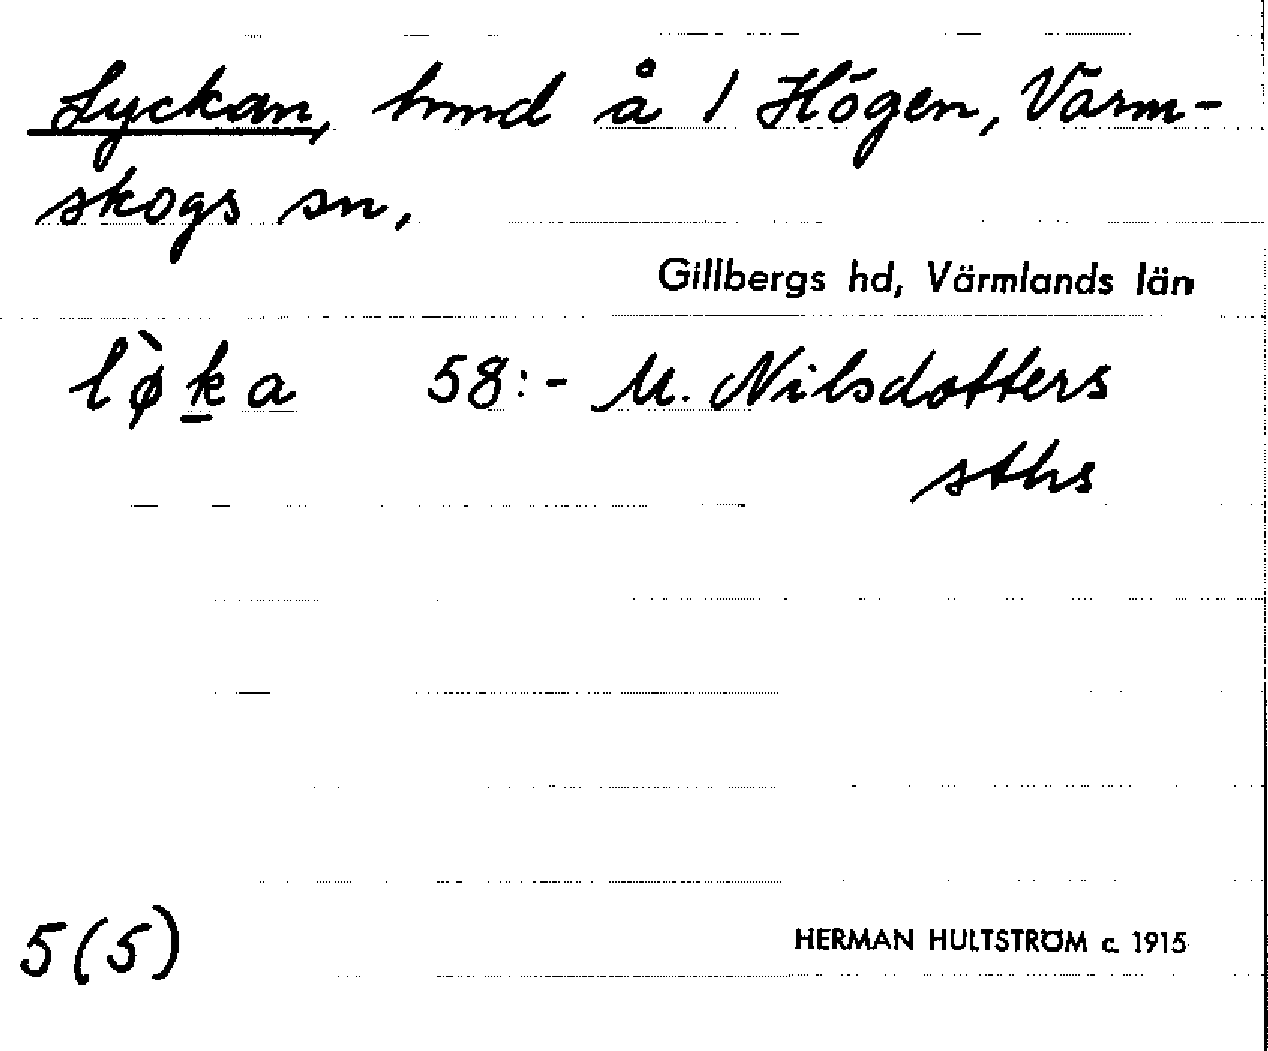 Lyckan, hmd å 1 Högen, Värm-
skogs sn,
Gillbergs hd, Värmlands län
lø̀ka 58:- M. Nilsdotters
sths
5(5)
HERMAN HULTSTRÖM c. 1915